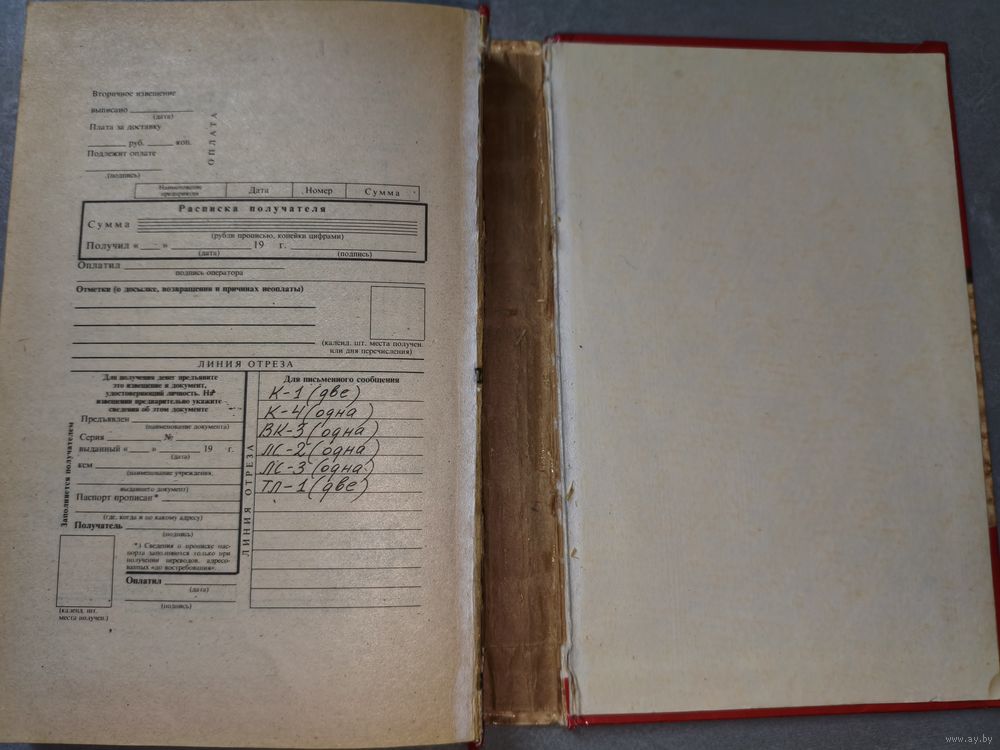 Вторичное извещение
выписано
(дата)
Плата за доставку
руб. коп.
Подлежит оплате
(подпись)
ОПЛАТА
Наименование предприятия Дата Номер Сумма
Расписка получателя
Сумма
(рубли прописью, копейки цифрами)
Получил « » 19 г.
(дата) (подпись)
Оплатил
подпись оператора
Отметки (о досылке, возвращении и причинах неоплаты)
(календ. шт. места получен.
или дня перечисления)
ЛИНИЯ ОТРЕЗА
Заполняется получателем
Для получения денег предъявите
это извещение и документ,
удостоверяющий личность. На
извещении предварительно укажите
сведения об этом документе
Предъявлен
(наименование документа)
Серия №
выданный « » 19 г.
(дата)
кем
(наименование учреждения,
выдавшего документ)
Паспорт прописан*
(где, когда и по какому адресу)
Получатель
(подпись)
*) Сведения о прописке пас-
порта заполняются только при
получении переводов, адресо-
ванных «до востребования».
Оплатил
(дата)
(подпись)
(календ. шт.
места получен.)
ЛИНИЯ ОТРЕЗА
Для письменного сообщения
К-1 (две)
К-4 (одна)
ВК-3 (одна)
ЛС-2 (одна)
ЛС-3 (одна)
ТЛ-1 (две)
www.ay.by